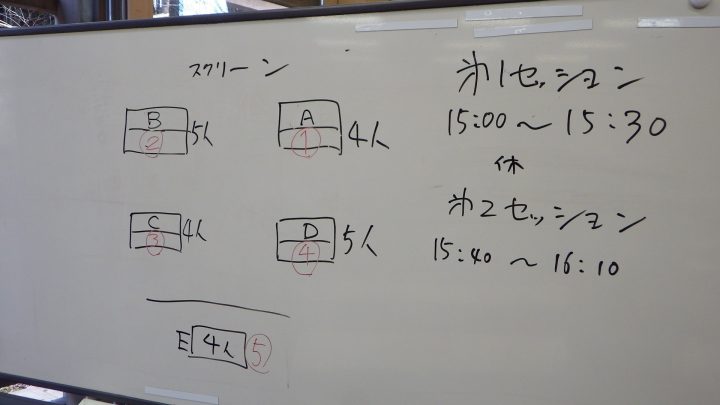 スクリーン
B
② 5人
A
① 4人
C
③ 4人
D
④ 5人
E 4人 ⑤
㐧1セッション
15:00～15:30
休
㐧2セッション
15:40～16:10